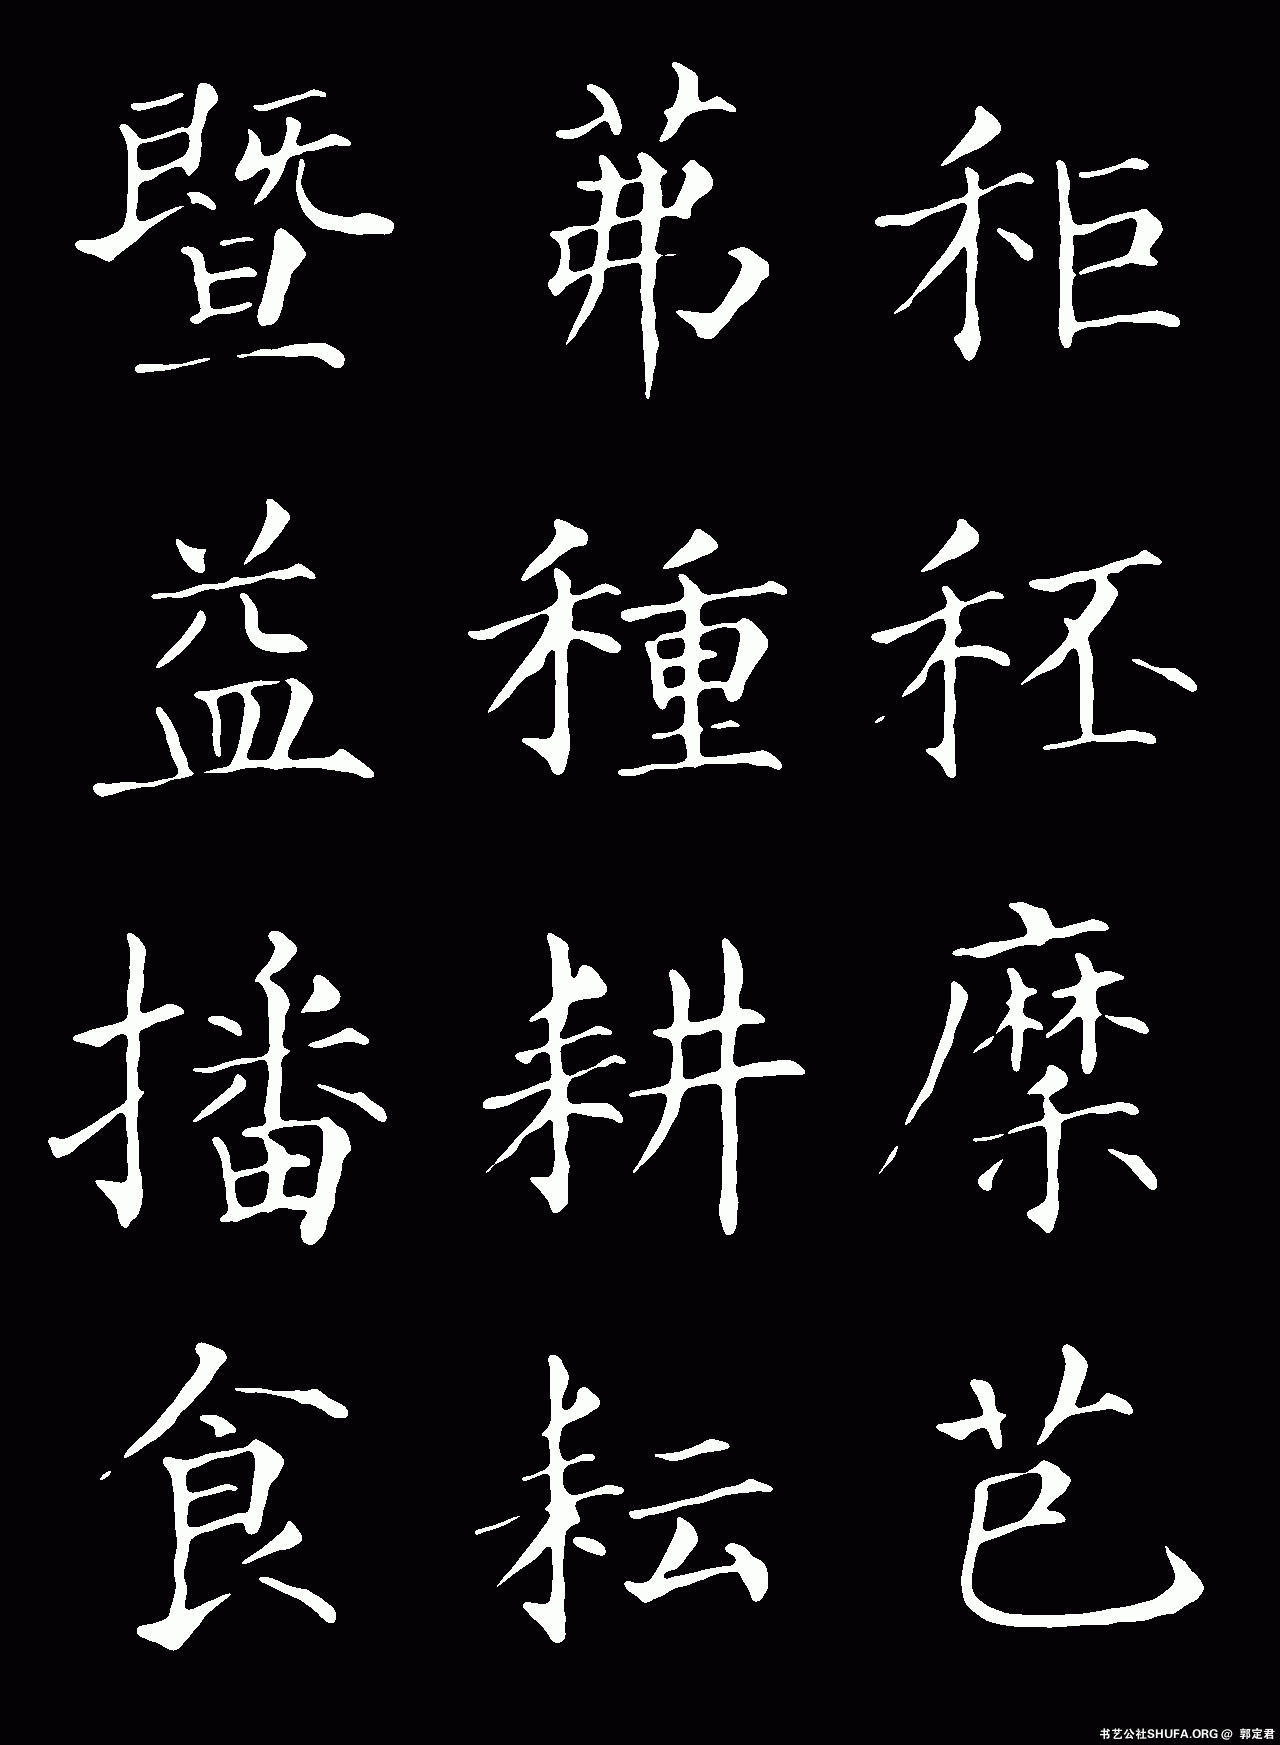 秬秠穈芑
茀種耕耘
暨益播食
书艺公社SHUFA.ORG @ 郭定君